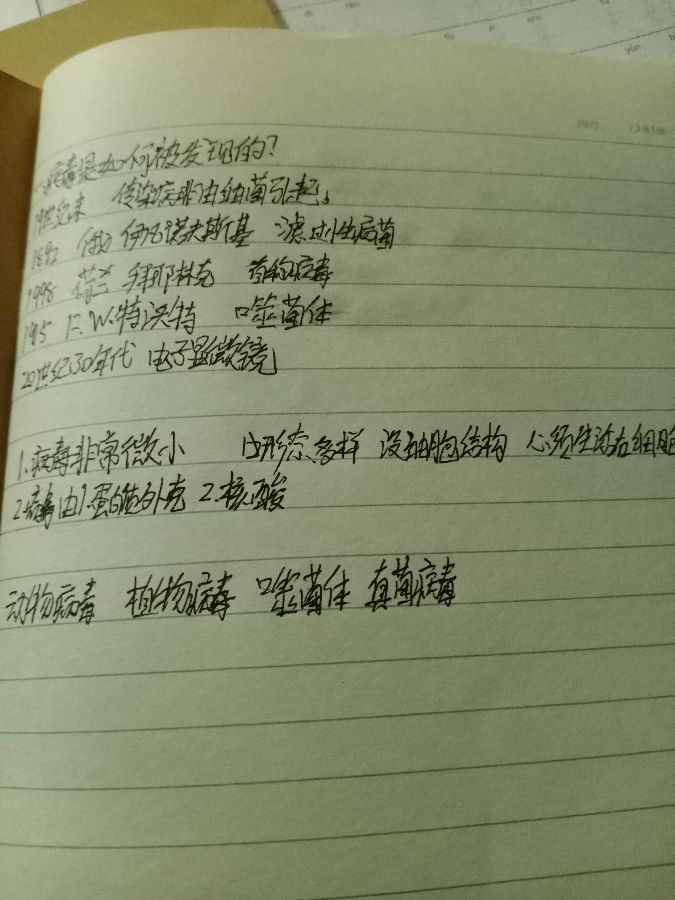 一、病毒是如何被发现的?
19世纪末 传染病非由细菌引起。
1892 俄 伊凡诺夫斯基 滤过性病菌
1998 荷兰 拜耶林克 病毒
1915 F.W.特沃特 噬菌体
20世纪30年代 电子显微镜
1.病毒非常微小 形态多样 没细胞结构 必须生活在细胞
2.病毒由1.蛋白质外壳 2.核酸
动物病毒 植物病毒 噬菌体 真菌病毒